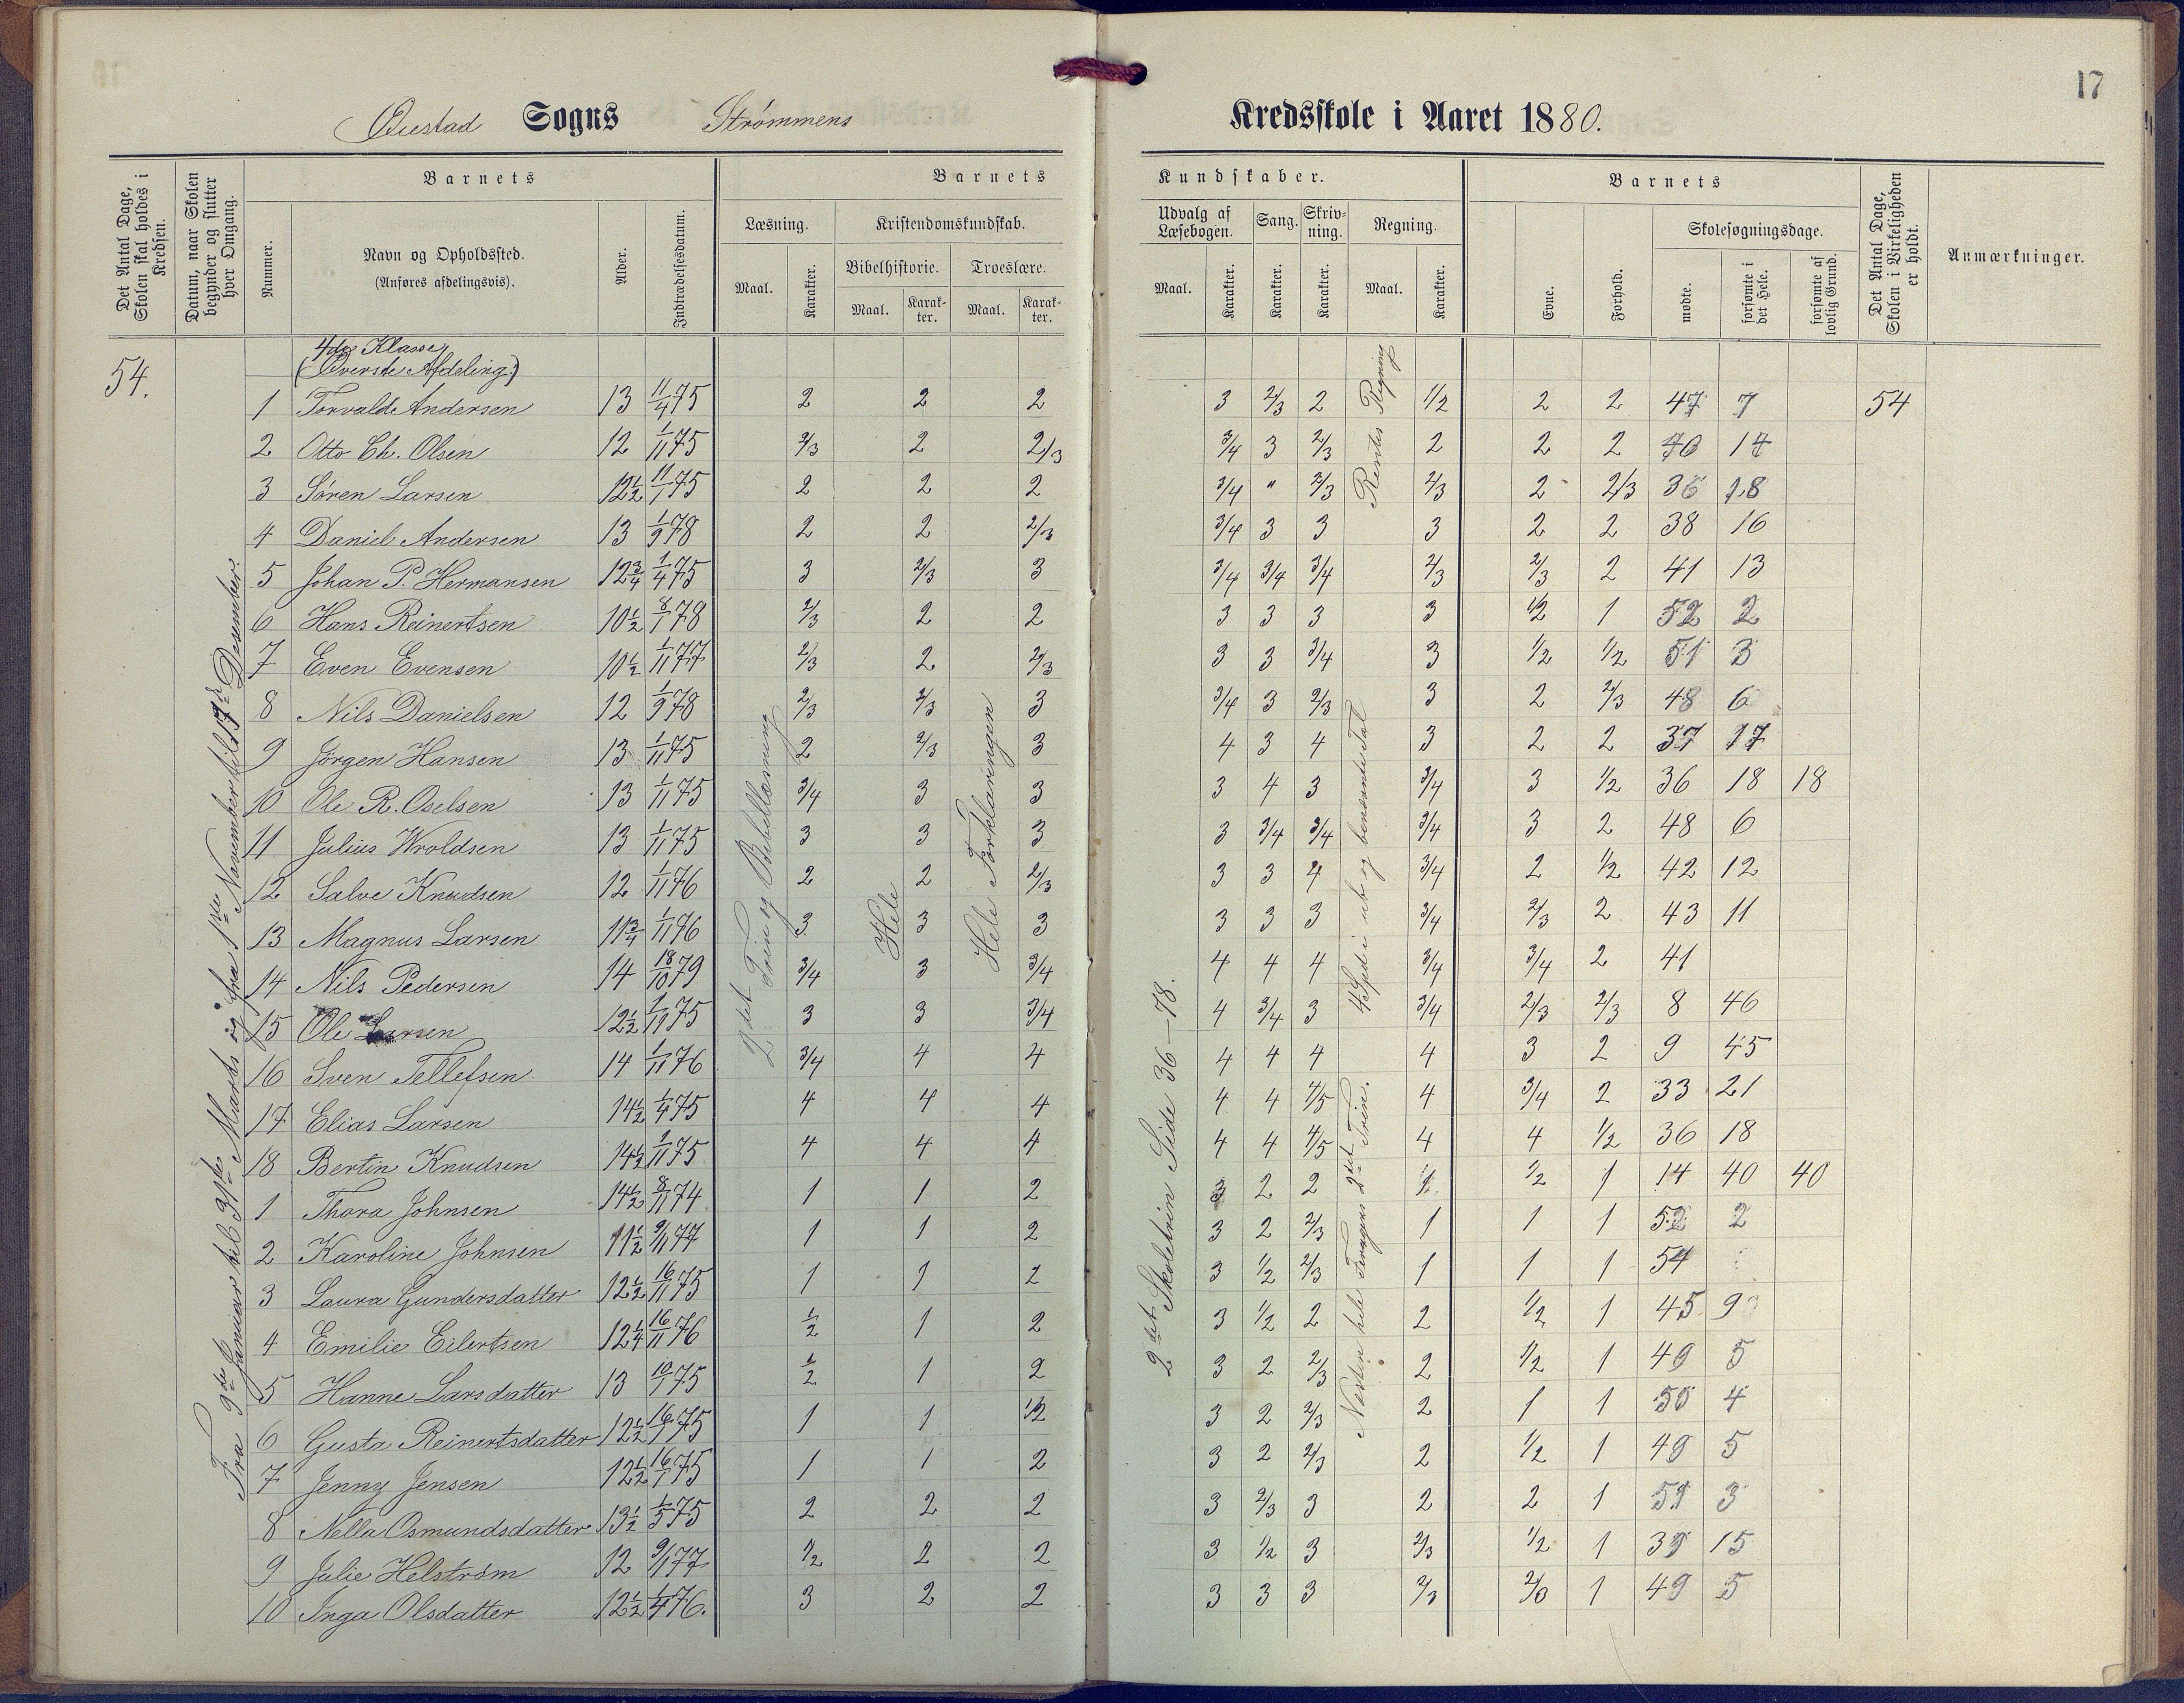 17
Øiestad Sogns Strømmens Kredsskole i Aaret 1880.
Det Antal Dage, Skolen skal holdes i Kredsen.
Datum, naar Skolen begynder og slutter hver Omgang.
Barnets
Nummer.
Navn og Opholdssted.
(Anføres afdelingsvis).
Alder.
Indtrædelsesdatum.
Barnets Kundskaber.
Læsning.
Maal.
Karakter.
Kristendomskundskab.
Bibelhistorie.
Maal.
Karakter.
Troeslære.
Maal.
Karakter.
Udvalg af Læsebogen.
Maal.
Karakter.
Sang.
Karakter.
Skrivning.
Karakter.
Regning.
Maal.
Karakter.
Barnets
Evne.
Forhold.
Skolesøgningsdage.
mødte.
forsømte i det Hele.
forsømte af lovlig Grund.
Det Antal Dage, Skolen i Virkeligheden er holdt.
Anmærkninger.
54.
Fra 9de Januar til 31te Marts og fra 1ste November til 17de Desember.
4de Klasse
(Øverste Afdeling)
2det Trin og Bibellæsning
Hele
Hele Forklaringen
2det Skoletrin Side 36-78.
Rentes Regning
4 Spdi ub og benevnte Tal
Næsten hele Trages 2det Trin.
1 Torvald Andersen 13 11/4 75 2 2 2 3 2/3 2 1/2 2 2 47 7 54
2 Otto Ch. Olsen 12 1/11 75 2/3 2 2/3 3/4 3 2/3 2 2 2 40 14
3 Søren Larsen 12 1/2 11/1 75 2 2 2 3/4 " 2/3 2/3 2 2/3 36 18
4 Daniel Andersen 13 1/9 78 2 2 2/3 3/4 3 3 3 2 2 38 16
5 Johan P. Hermansen 12 3/4 1/4 75 3 2/3 3 3/4 3/4 3/4 2/3 2/3 2 41 13
6 Hans Reinertsen 10 1/2 8/1 78 2/3 2 2 3 3 3 3 1/2 1 52 2
7 Even Evensen 10 1/2 1/11 77 2/3 2 2/3 3 3 3/4 3 1/2 1/2 51 3
8 Nils Danielsen 12 1/9 78 2/3 2/3 3 3/4 3 2/3 3 2 2/3 48 6
9 Jörgen Hansen 13 1/11 75 2 2/3 3 4 3 4 3 2 2 37 17
10 Ole R. Oselsen 13 1/11 75 3/4 3 3 3 4 3 3/4 3 1/2 36 18 18
11 Julius Wroldsen 13 1/11 75 3 3 3 3 3/4 3/4 3/4 3 2 48 6
12 Salve Knudsen 12 1/11 76 2 2 2/3 3 3 4 3/4 2 1/2 42 12
13 Magnus Larsen 11 3/4 1/11 76 3 3 3 3 3 3 3/4 2/3 2 43 11
14 Nils Pedersen 14 18/10 79 3/4 3 3/4 4 4 4 3/4 3/4 2 41
15 Ole Larsen 12 1/2 1/11 75 3 3 3/4 4 3/4 3 3/4 2/3 2/3 8 46
16 Sven Tellefsen 14 1/11 76 3/4 4 4 4 4 4 4 3 2 9 45
17 Elias Larsen 14 1/2 1/4 75 4 4 4 4 4 4/5 4 3/4 2 33 21
18 Bertin Knudsen 14 1/2 1/11 75 4 4 4 4 4 4/5 4 4 1/2 36 18
1 Thora Johnsen 14 1/2 8/11 74 1 1 2 3 2 2 1 1/2 1 14 40 40
2 Karoline Johnsen 11 1/2 9/11 77 1 1 2 3 2 2/3 1 1 1 52 2
3 Laura Gundersdatter 12 1/2 16/11 75 1 1 2 3 1/2 2/3 1 1 1 54
4 Emilie Eilertsen 12 1/4 16/11 76 1/2 1 2 3 1/2 2 2 1/2 1 45 9
5 Hanne Larsdatter 13 10/1 75 1/2 1 2 3 2 2/3 2 1/2 1 49 5
6 Gusta Reinertsdatter 12 1/2 16/1 75 1 1 1/2 3 2 2/3 2 1 1 50 4
7 Jenny Jensen 12 1/2 16/1 75 1 1 2 3 2 2/3 2 1/2 1 49 5
8 Nella Osmundsdatter 13 1/2 1/5 75 2 2 2 3 2/3 3 2 2 1 51 3
9 Julie Helström 12 9/1 77 1/2 2 2 3 1/2 3 2/3 1/2 1 39 15
10 Inga Olsdatter 12 1/2 1/4 76. 3 2 2 3 3 3 2/3 2/3 1 49 5